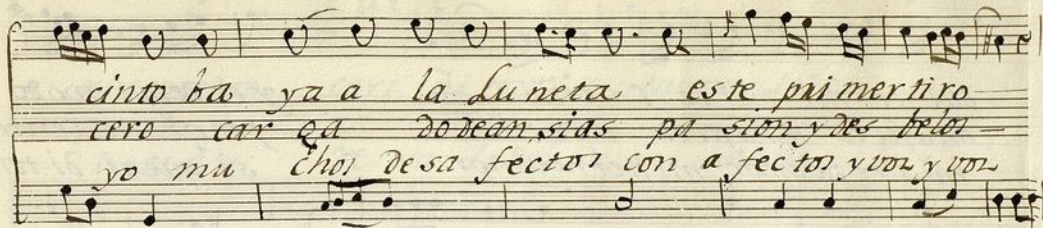 cinto ba ya a la Luneta este pri mer tiro
cero car ga do de an sias pa sion y des belos
yo mu chos desa fectos con a fectos y voz y voz